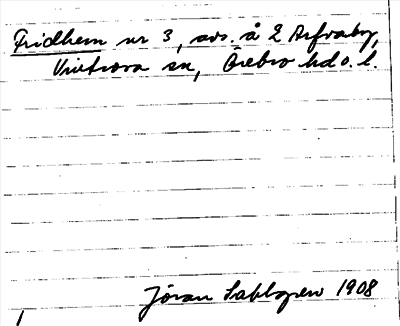 Fridhem nr 3, avs. å 2 Arfvaby,
Vintrosa sn, Örebro hd o. l.
Jöran Sahlgren 1908